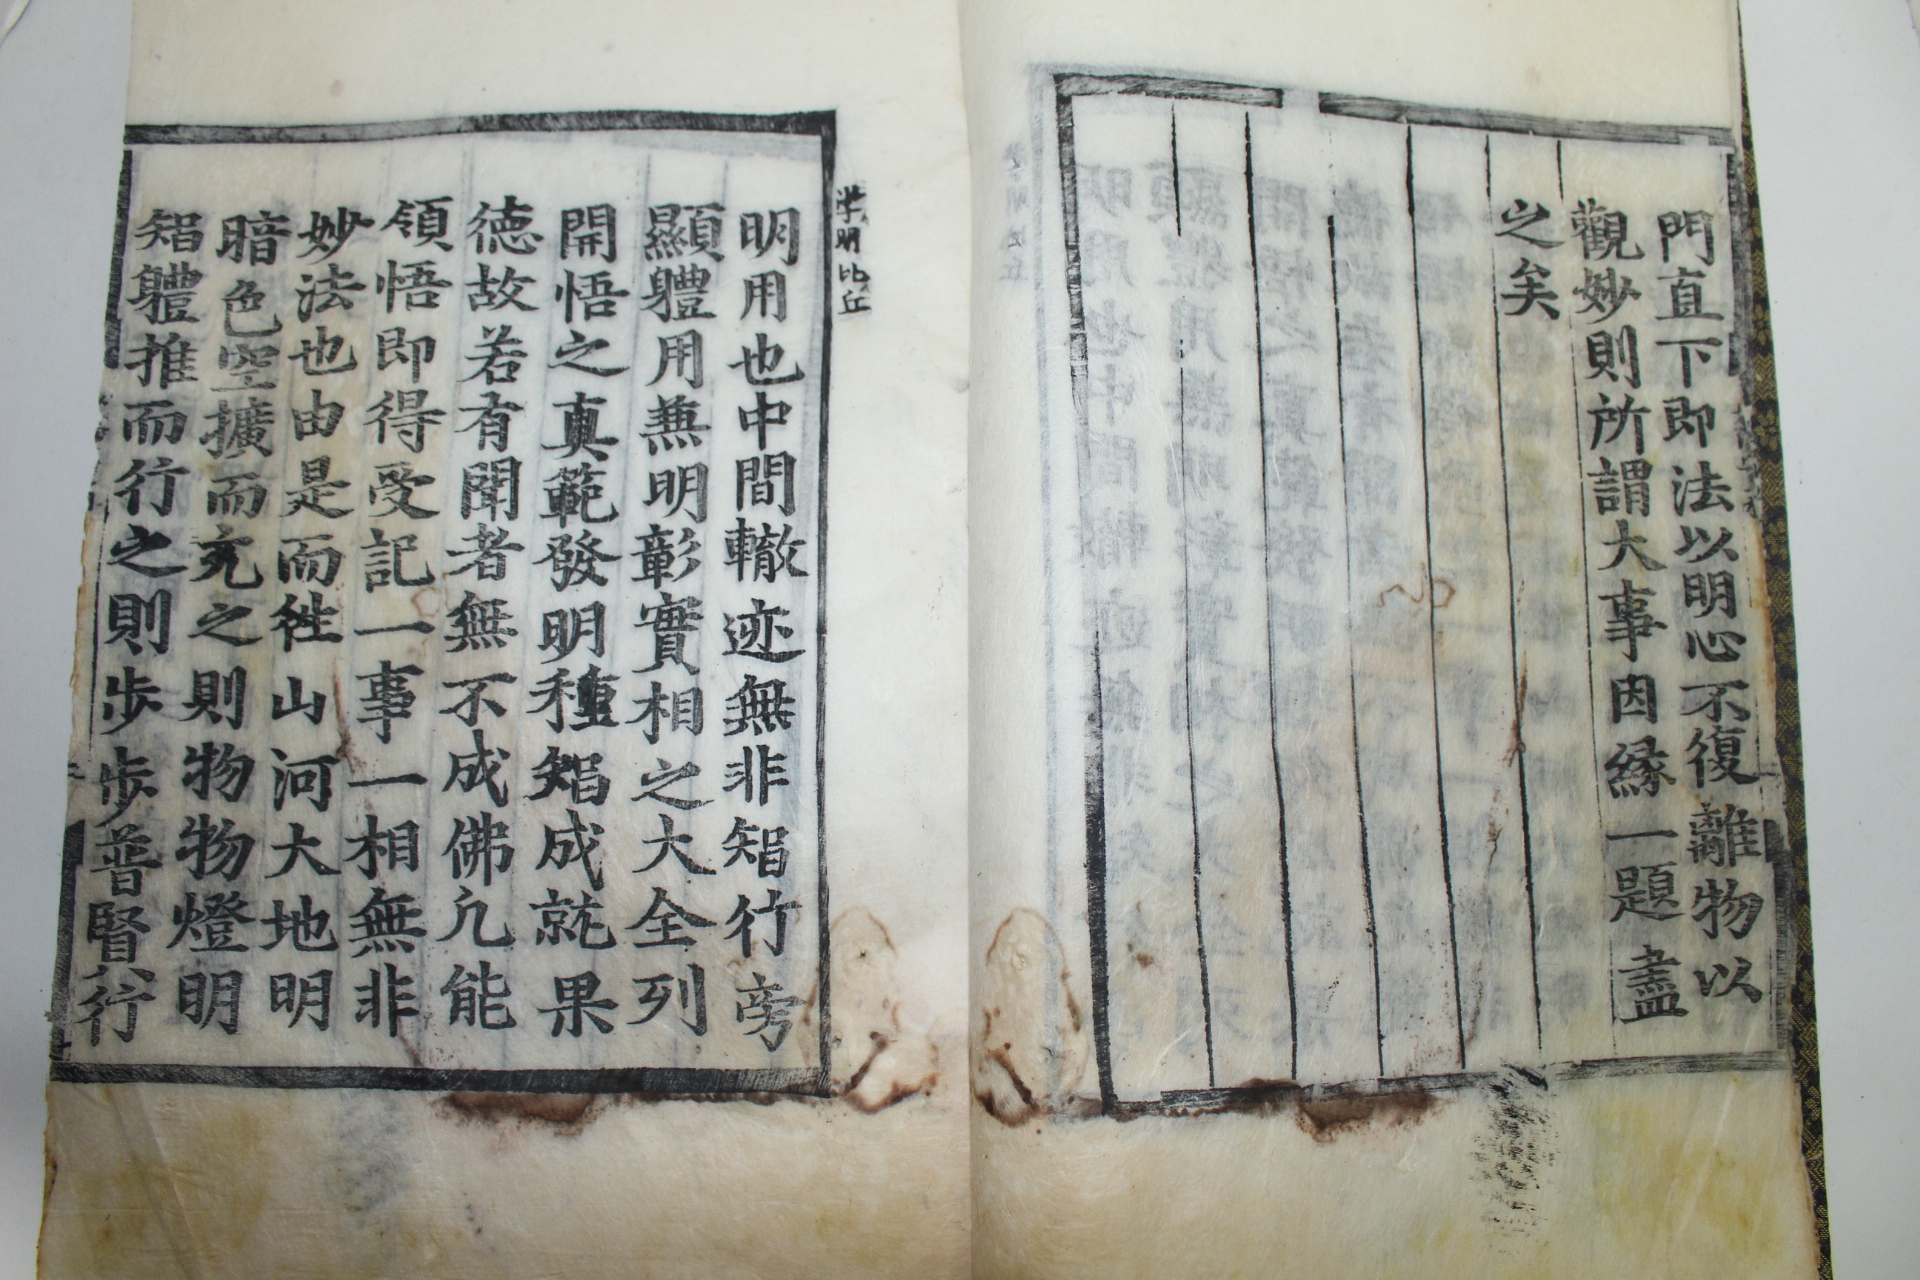 門直下即法以明心不復離物以
觀妙則所謂大事因緣一題盡
之矣
明比丘
明用也中間轍迹無非智行旁
顯體用兼明彰實相之大全列
開悟之真範發明種智成就果
德故若有聞者無不成佛凢能
領悟即得受記一事一相無非
妙法也由是而徃山河大地明
暗色空擴而充之則物物燈明
智體推而行之則步步普賢行